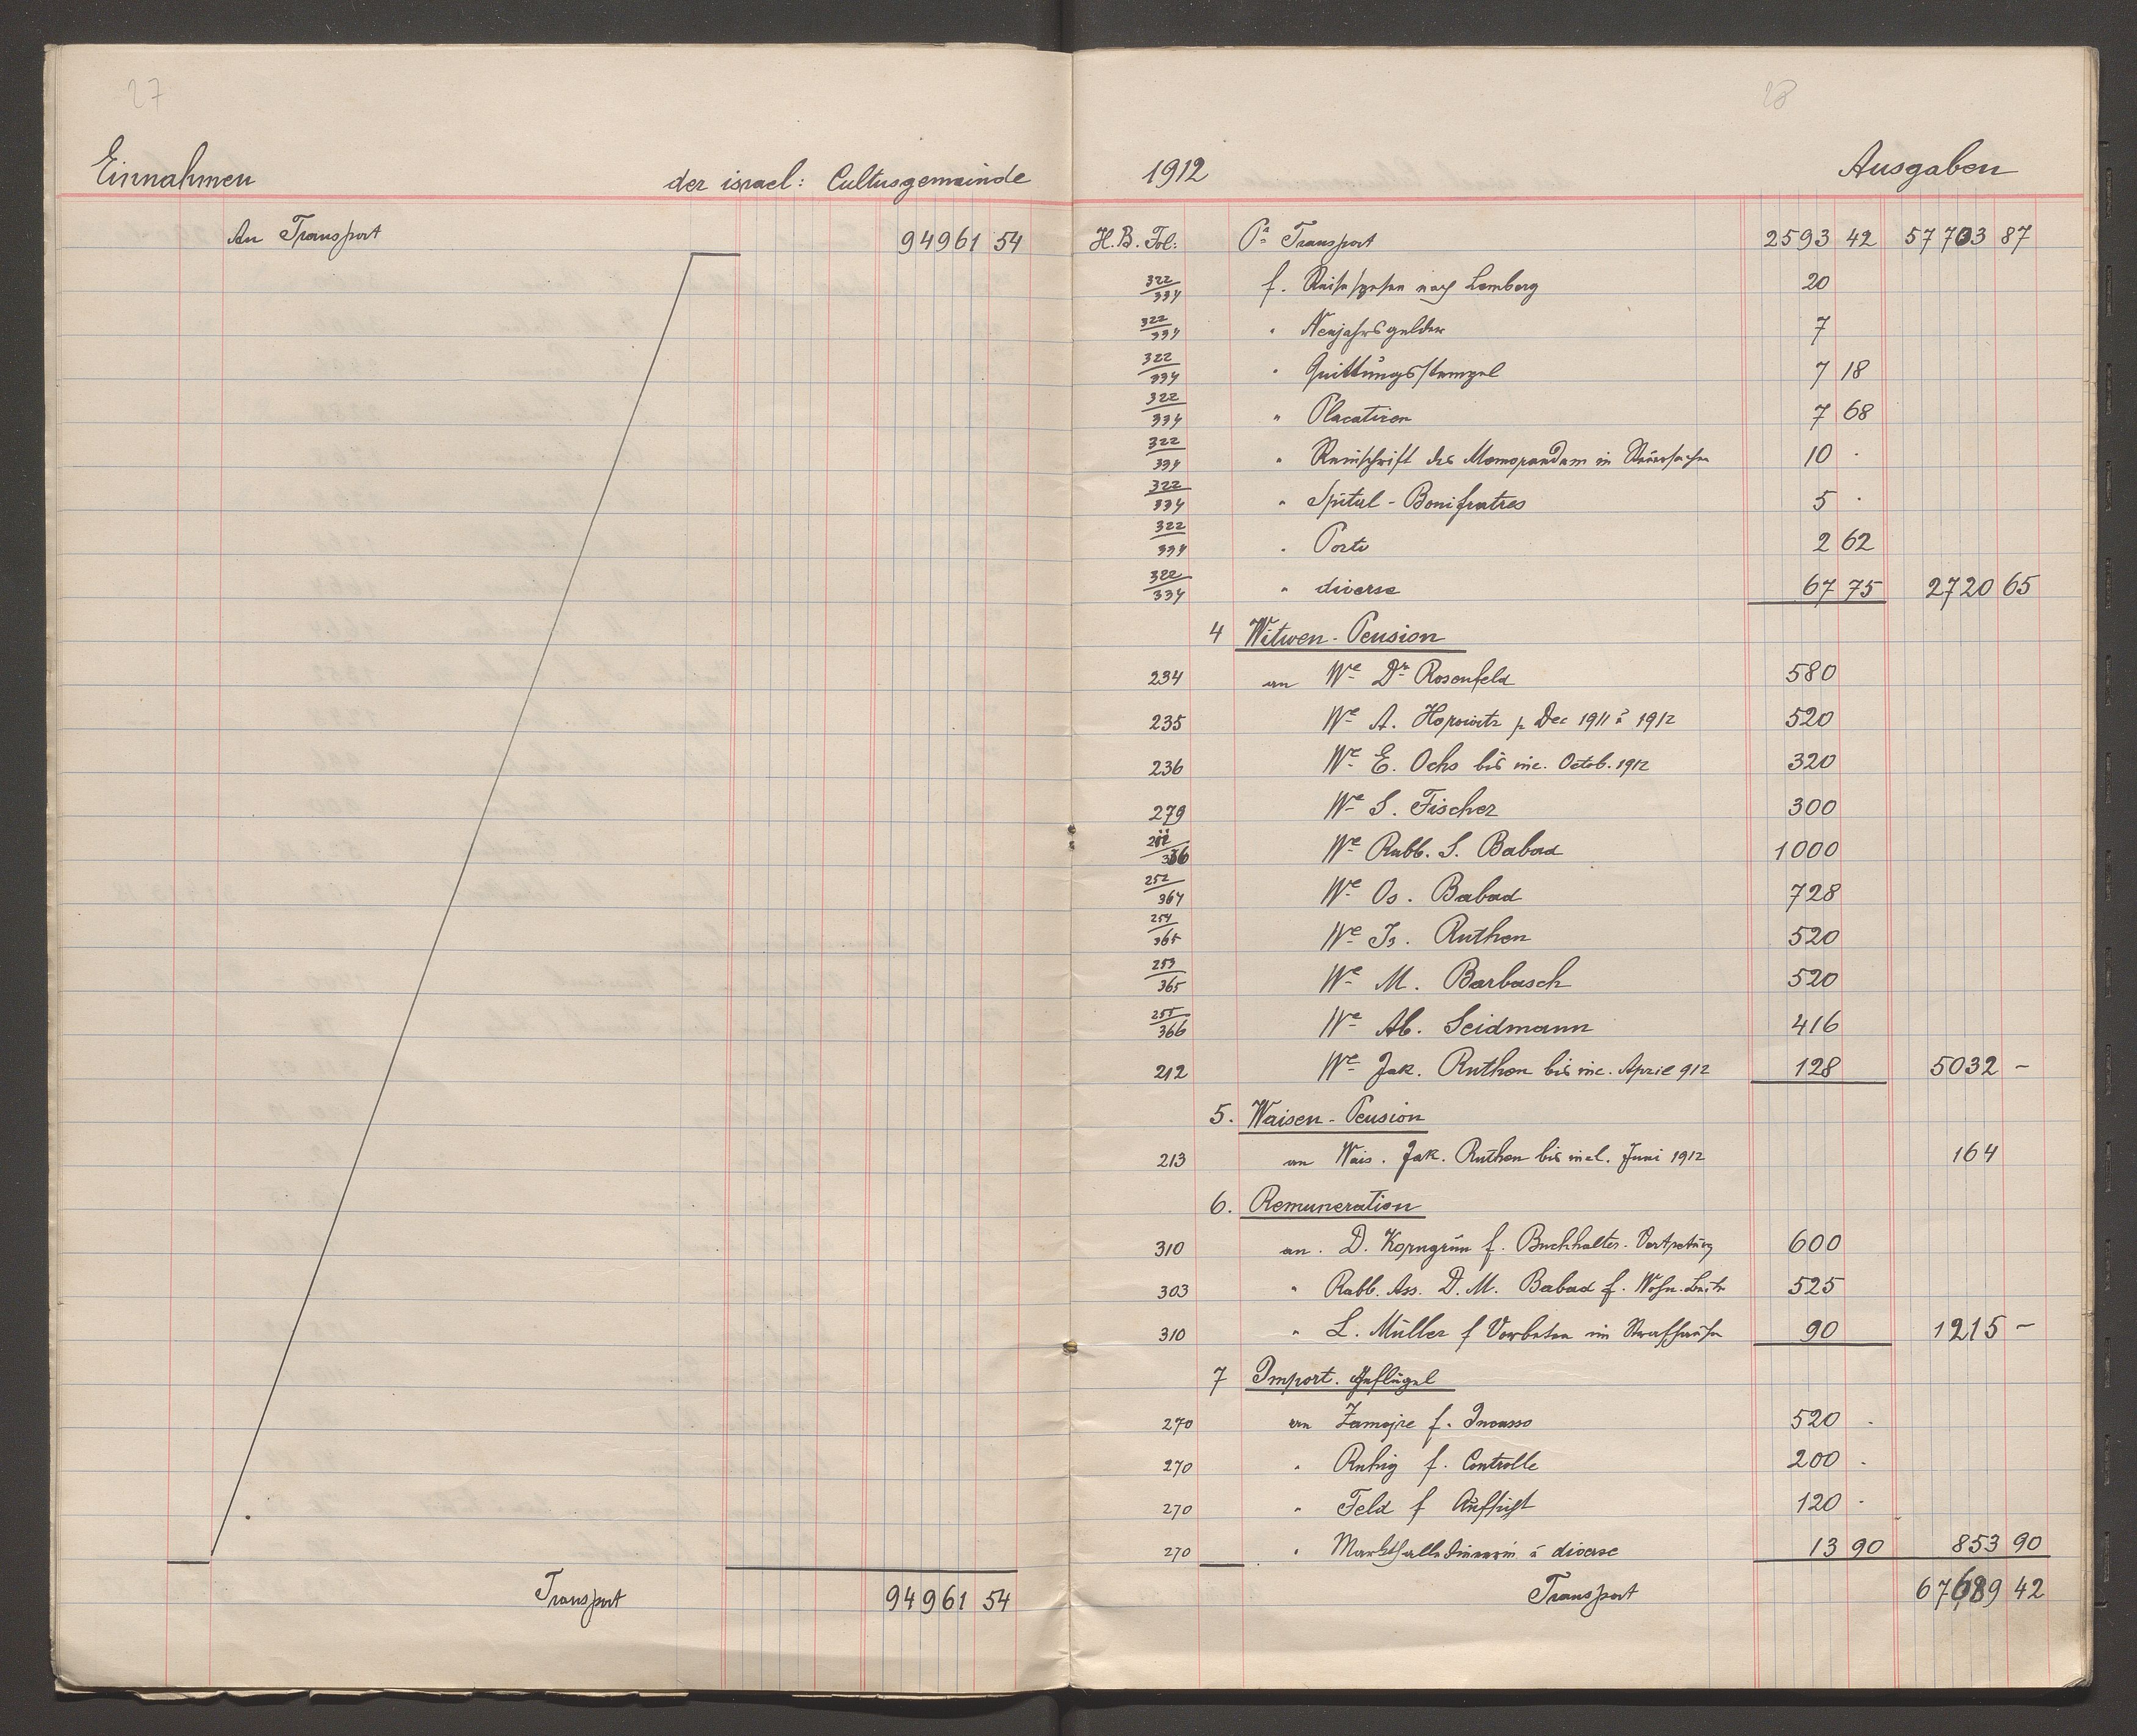 27
Einnahmen der israel: Cultusgemeinde
An Transport 94961 54
Transport 94961 54
28
1912 Ausgaben
H. B. Fol: Pr Transport 2593 42 57703 87
322/334 f. Reisespesen nach Lemberg 20
322/334 " Neujahrsgelder 7
322/334 " Quittungsstempel 7 18
322/334 " Placatiren 7 68
322/334 " Reinschrift des Memorandum in 10 .
322/334 " Spital-Bonifratres 5 .
322/334 " Porto 2 62
322/334 " diverse 67 75 2720 65
4 Witwen-Pension
234 an We Dr Rosenfeld 580
235 We A. Horowitz p Dec 1911 à 1912 520
236 We E. Ochs bis inc. Octob. 1912 320
279 We S. Fischer 300
We Rabb. S. Babad 1000
252/364 We Os. Babad 728
254/365 We Is. Ruthen 520
253/365 We M. Barbasch 520
255/366 We Ab. Seidmann 416
212 We Jak. Ruthen bis inc. April 912 128 5032 –
5. Waisen-Pension
213 an Wais. Jak. Ruthen bis incl. Juni 1912 164
6. Remuneration
310 an. D. Korngrün f. Buchhalter-Vertretung 600
303 " Rabb. Ass. D. M. Babad f. Wohn. 525
310 " L. Müller f Vorbeten im Strafhause 90 1215 –
7 Import. Geflügel
270 an Zamojre f. Incasso 520 .
270 " Ruhig f. Controlle 200 .
270 " Feld f Aufsicht 120 .
270 " à diverse 13 90 853 90
Transport 67689 42